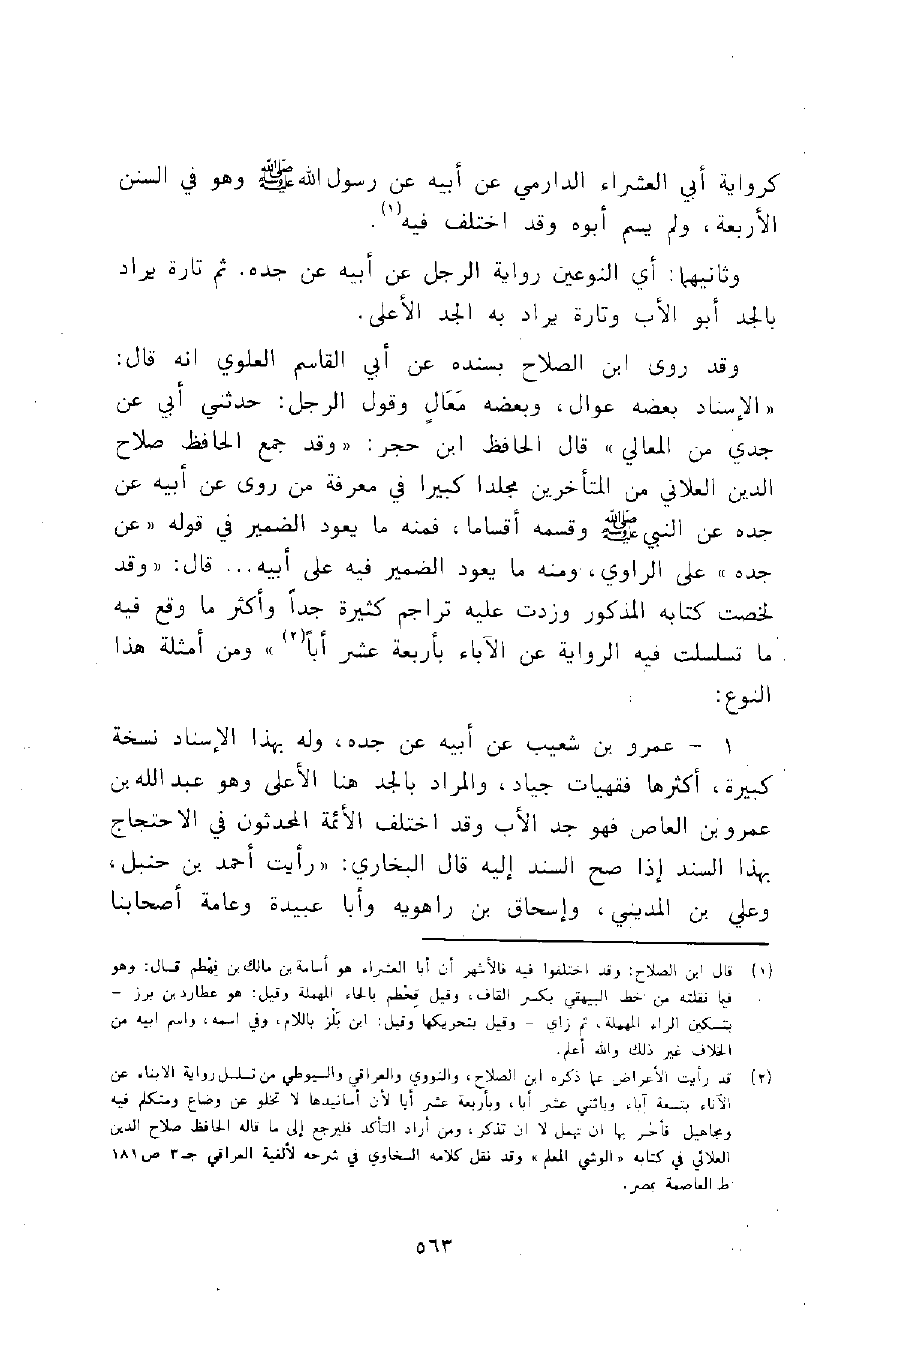 كرواية أبي العشراء الدارمي عن أبيه عن رسول الله ﷺ وهو في السنن
الأربعة، ولم يسم أبوه وقد اختلف فيه(١).
وثانيهما: أي النوعين رواية الرجل عن أبيه عن جده. ثم تارة يراد
بالجد أبو الأب وتارة يراد به الجد الأعلى.
وقد روى ابن الصلاح بسنده عن أبي القاسم العلوي انه قال:
«الإسناد بعضه عوال، وبعضه مَعَالٍ وقول الرجل: حدثني أبي عن
جدي من المعالي» قال الحافظ ابن حجر: «وقد جمع الحافظ صلاح
الدين العلائي من المتأخرين مجلدا كبيرا في معرفة من روى عن أبيه عن
جده عن النبي ﷺ وقسمه أقساما، فمنه ما يعود الضمير في قوله «عن
جده» على الراوي، ومنه ما يعود الضمير فيه على أبيه... قال: «وقد
لخصت كتابه المذكور وزدت عليه تراجم كثيرة جداً وأكثر ما وقع فيه
ما تسلسلت فيه الرواية عن الآباء بأربعة عشر أباً(٢)» ومن أمثلة هذا
النوع:
١ - عمرو بن شعيب عن أبيه عن جده، وله بهذا الإسناد نسخة
كبيرة، أكثرها فقهيات جياد، والمراد بالجد هنا الأعلى وهو عبد الله بن
عمرو بن العاص فهو جد الأب وقد اختلف الأئمة المحدثون في الاحتجاج
بهذا السند إذا صح السند إليه قال البخاري: «رأيت أحمد بن حنبل،
وعلي بن المديني، وإسحاق بن راهويه وأبا عبيدة وعامة أصحابنا
(١) قال ابن الصلاح: وقد اختلفوا فيه فالأشهر أن أبا العشراء هو أسامة بن مالك بن قهطم قال: وهو
فيما نقلته من خط البيهقي بكسر القاف، وقيل قحطم بالحاء المهملة وقيل: هو عطارد بن برز -
بتسكين الراء المهملة، ثم زاي - وقيل بتحريكها وقيل: ابن بلز باللام، وفي اسمه، واسم ابيه من
الخلاف غير ذلك والله أعلم.
(٢) قد رأيت الأعراض عما ذكره ابن الصلاح، والنووي والعراقي والسيوطي من تسلسل رواية الابناء عن
الآباء بتسعة آباء وباثني عشر أبا، وبأربعة عشر أبا لأن أسانيدها لا تخلو عن وضاع ومتكلم فيه
ومجاهيل فأحر بها ان تهمل لا ان تذكر، ومن أراد التأكد فليرجع إلى ما قاله الحافظ صلاح الدين
العلائي في كتابه «الوشي المعلم» وقد نقل كلامه السخاوي في شرحه لألفية العراقي جـ٣ ص١٨١
ط العاصمة بمصر.
٥٦٣